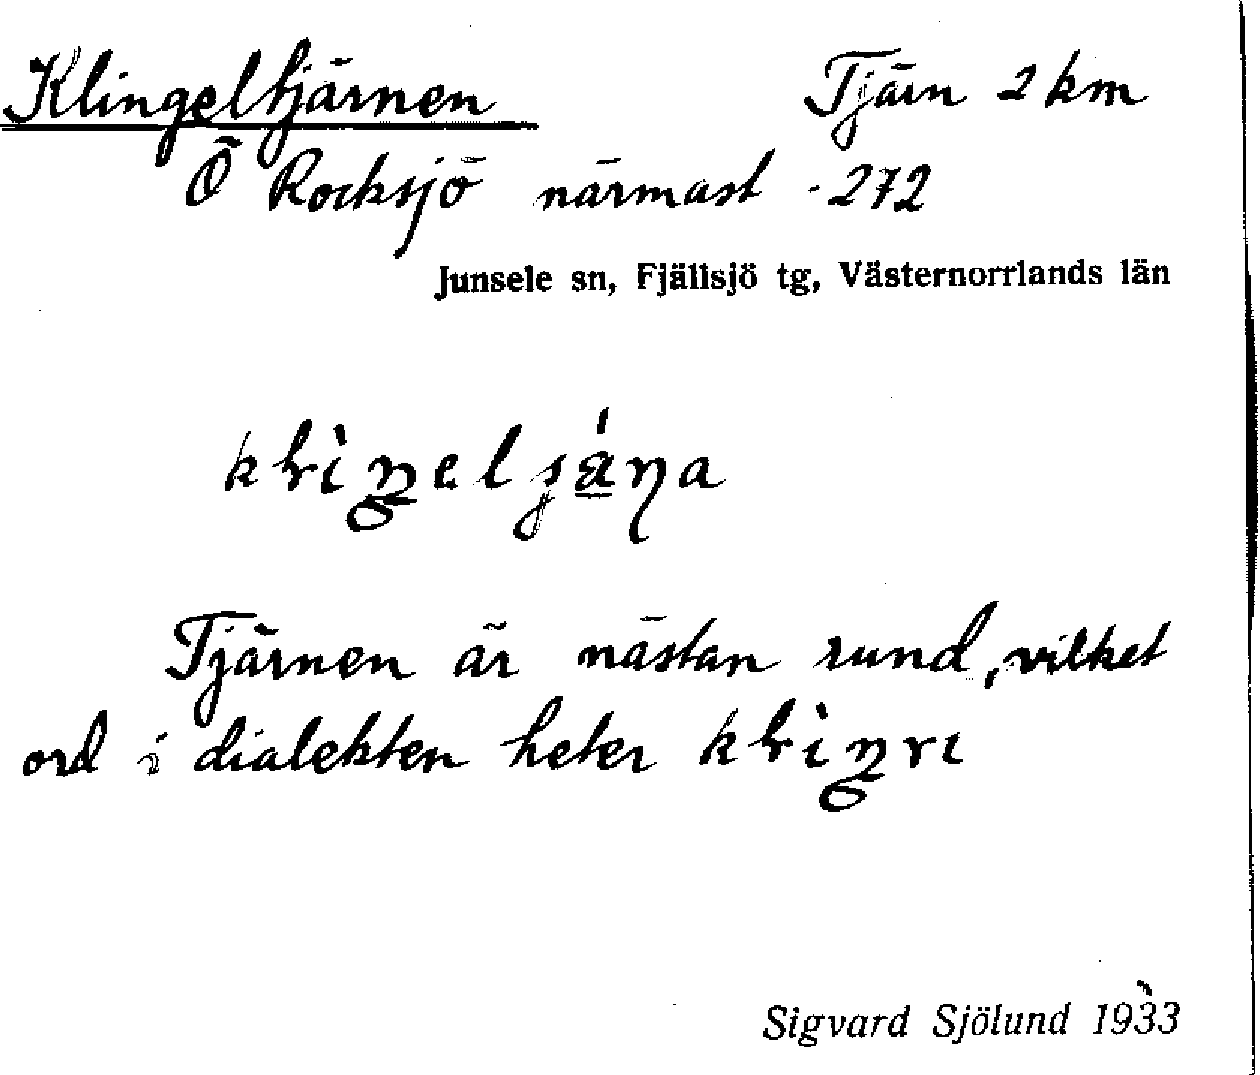 Klingeltjärnen Tjärn 2 km
Ö Rocksjö närmast -272
Junsele sn, Fjällsjö tg, Västernorrlands län
Tjärnen är nästan rund, vilket
ord i dialekten heter
Sigvard Sjölund 1933